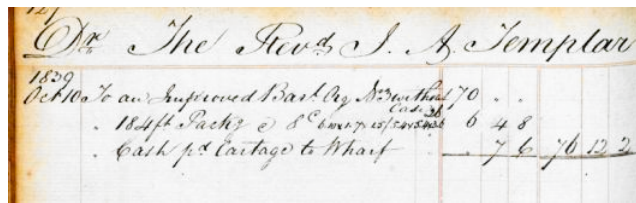 127
Dr The Revd J. A. Templar
1839
Oct 10 To an Improved Barl Org No 3 without 170 . .
Case
. 184 ft Packg @ 8 6 4 8
. Cash pd Cartage to Wharf 7 6 76 12 2